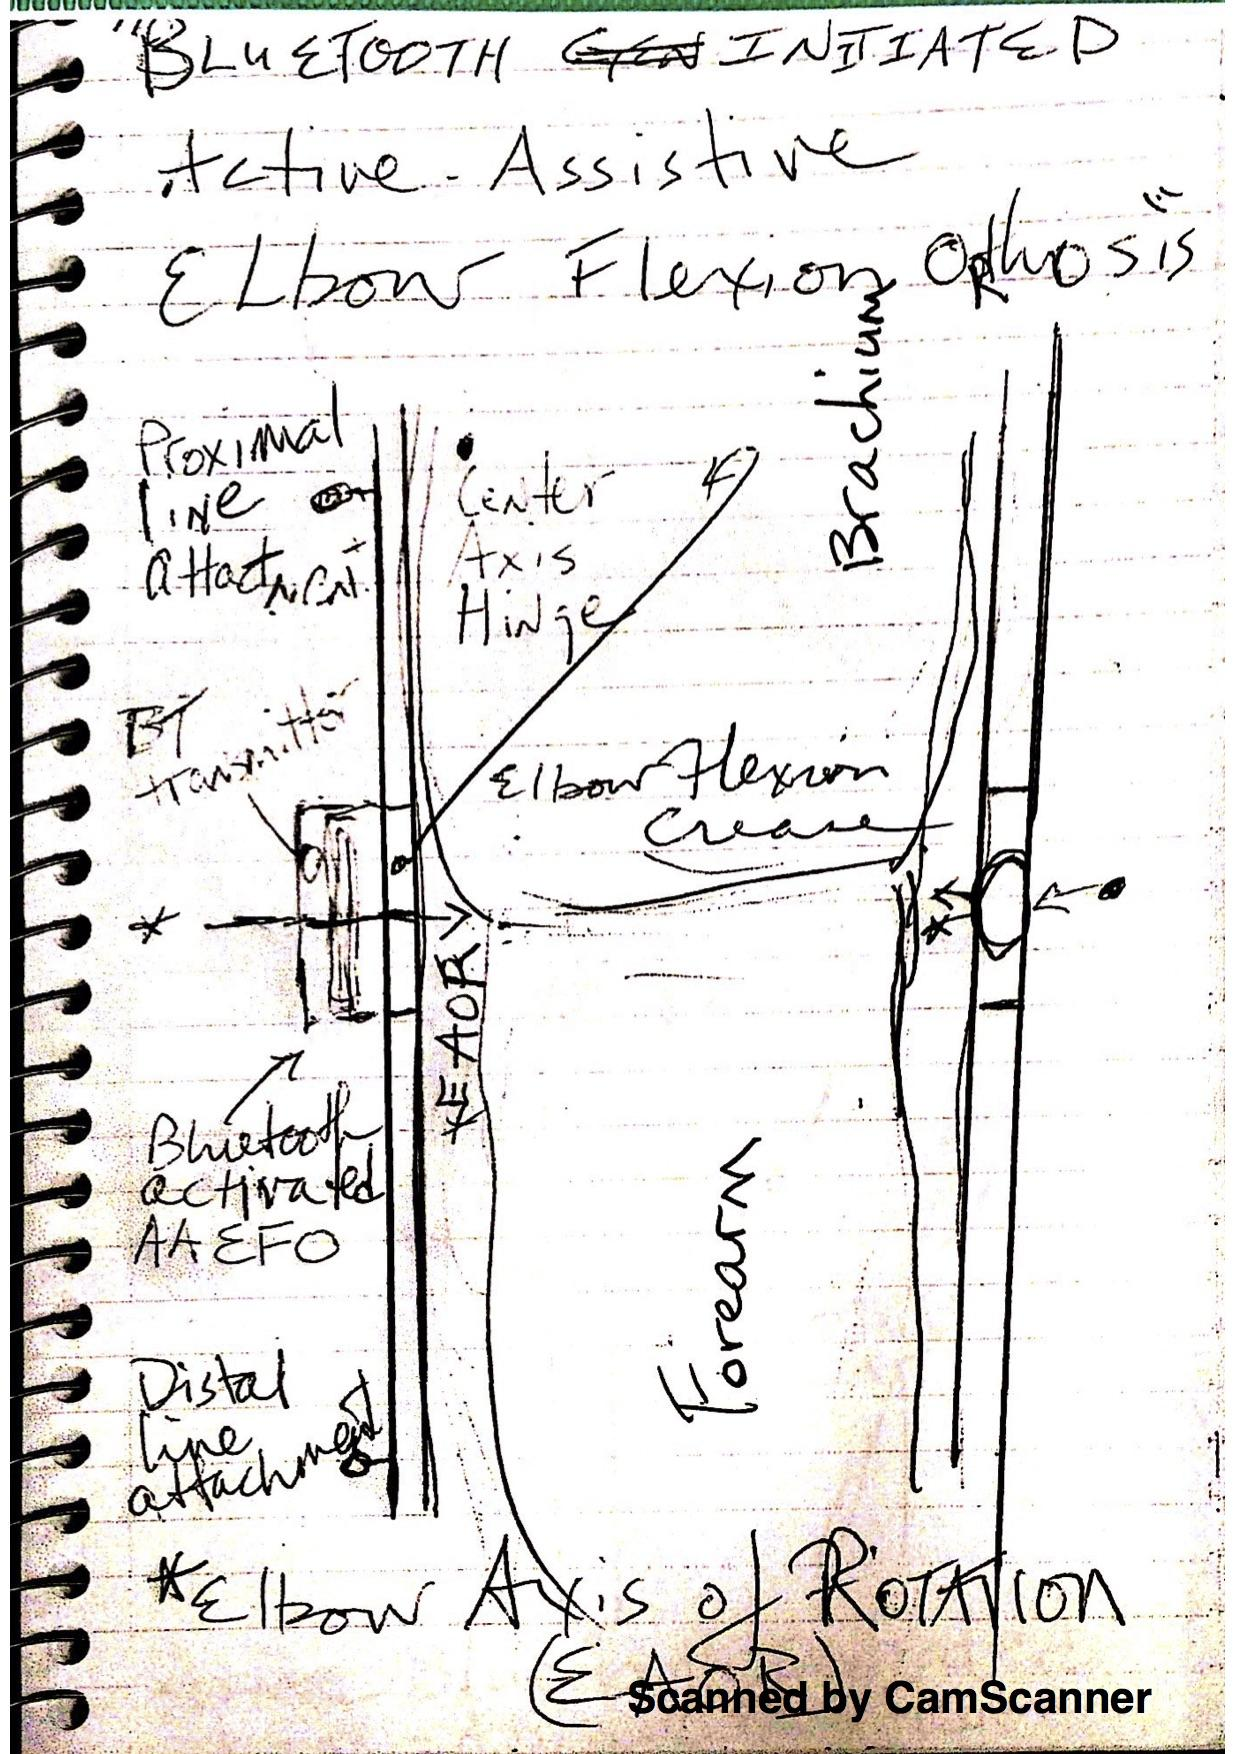 "BLUETOOTH INITIATED
Active-Assistive
Elbow Flexion Orthosis"
Brachium
Proximal
line
attachment
• Center
Axis
Hinge
BT
transmitter
Elbow Flexion
Crease
*
*
*EAOR
Bluetooth
activated
AAEFO
Forearm
Distal
line
attachment
*Elbow Axis of ROTATION
(EAOR)
Scanned by CamScanner